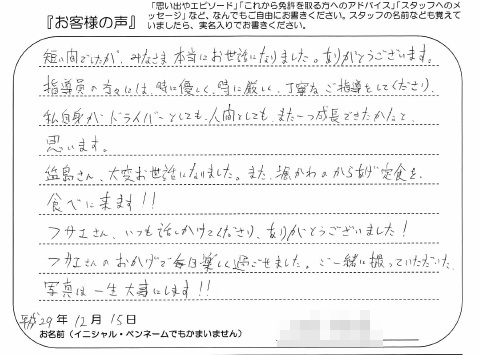 『お客様の声』
「思い出やエピソード」「これから免許を取る方へのアドバイス」「スタッフへのメ
ッセージ」など、なんでもご自由にお書きください。スタッフの名前なども覚えて
いましたら、実名入りでお書きください。
短い間でしたが、みなさま本当にお世話になりました。ありがとうございます。
指導員の方々には、時に優しく、時に厳しく、丁寧なご指導をしてくださり、
私自身がドライバーとしても、人間としても、また一つ成長できたかなと、
思います。
塩島さん、大変お世話になりました。また、堀かわのからあげ定食を、
食べに来ます!!
フサエさん、いつも話しかけてくださり、ありがとうございました!
フサエさんのおかげで毎日楽しく過ごせました。ご一緒に撮っていただいた、
写真は一生大事にします!!
平成29年 12月 15日
お名前(イニシャル・ペンネームでもかまいません)